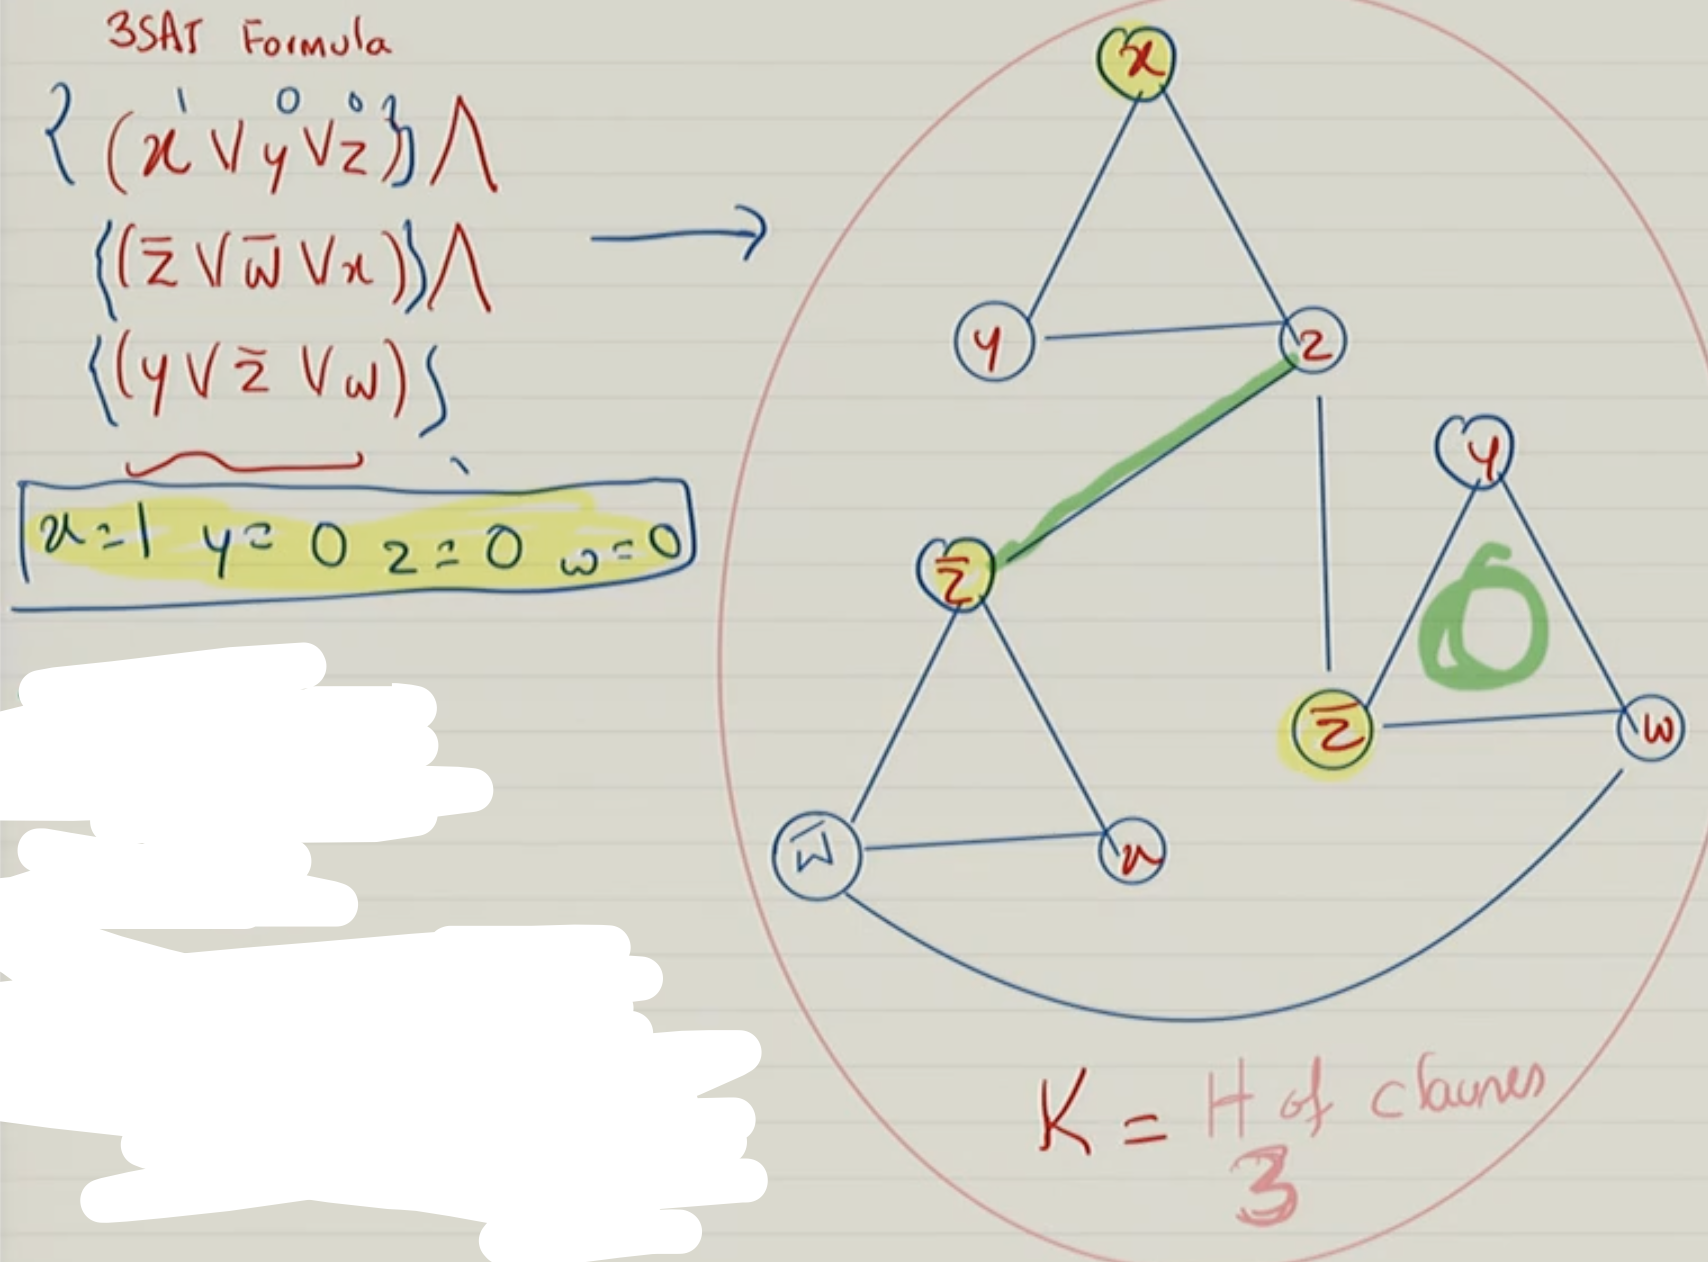 3SAT Formula
1 0 0
{(x ∨ y ∨ z)} ∧
{(z̄ ∨ w̄ ∨ x)} ∧
{(y ∨ z̄ ∨ w)}
x=1 y=0 z=0 w=0
x
y z
y
z̄
z̄ w
w̄ x
K = # of clauses
3